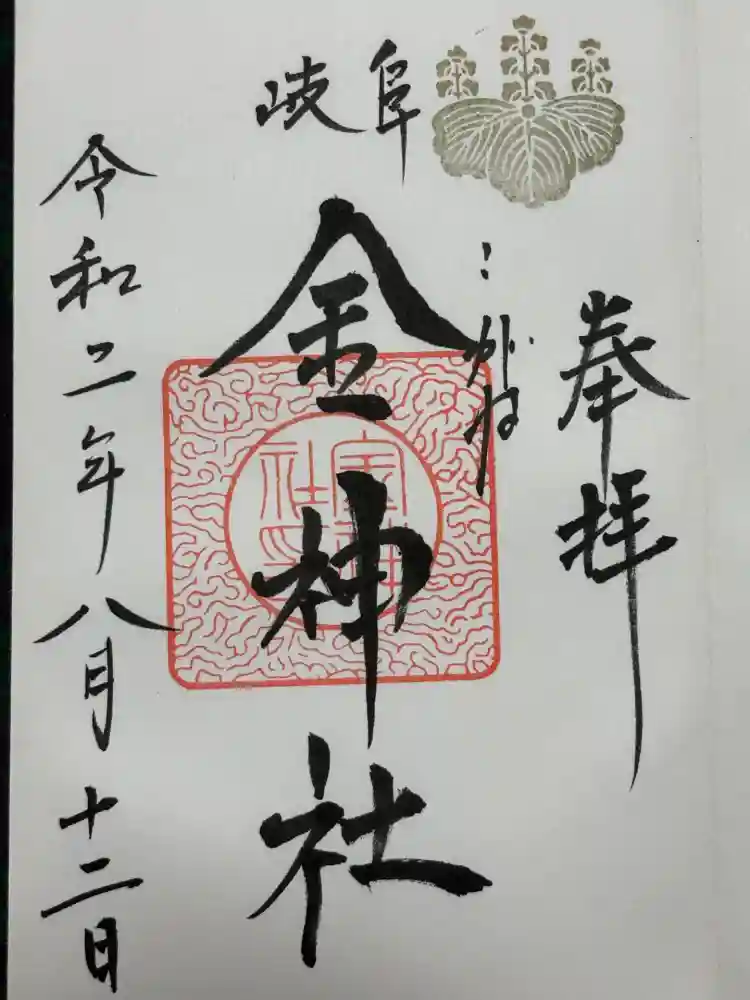 奉拝
岐阜
こがね
金神社
金神社印
令和二年八月十二日